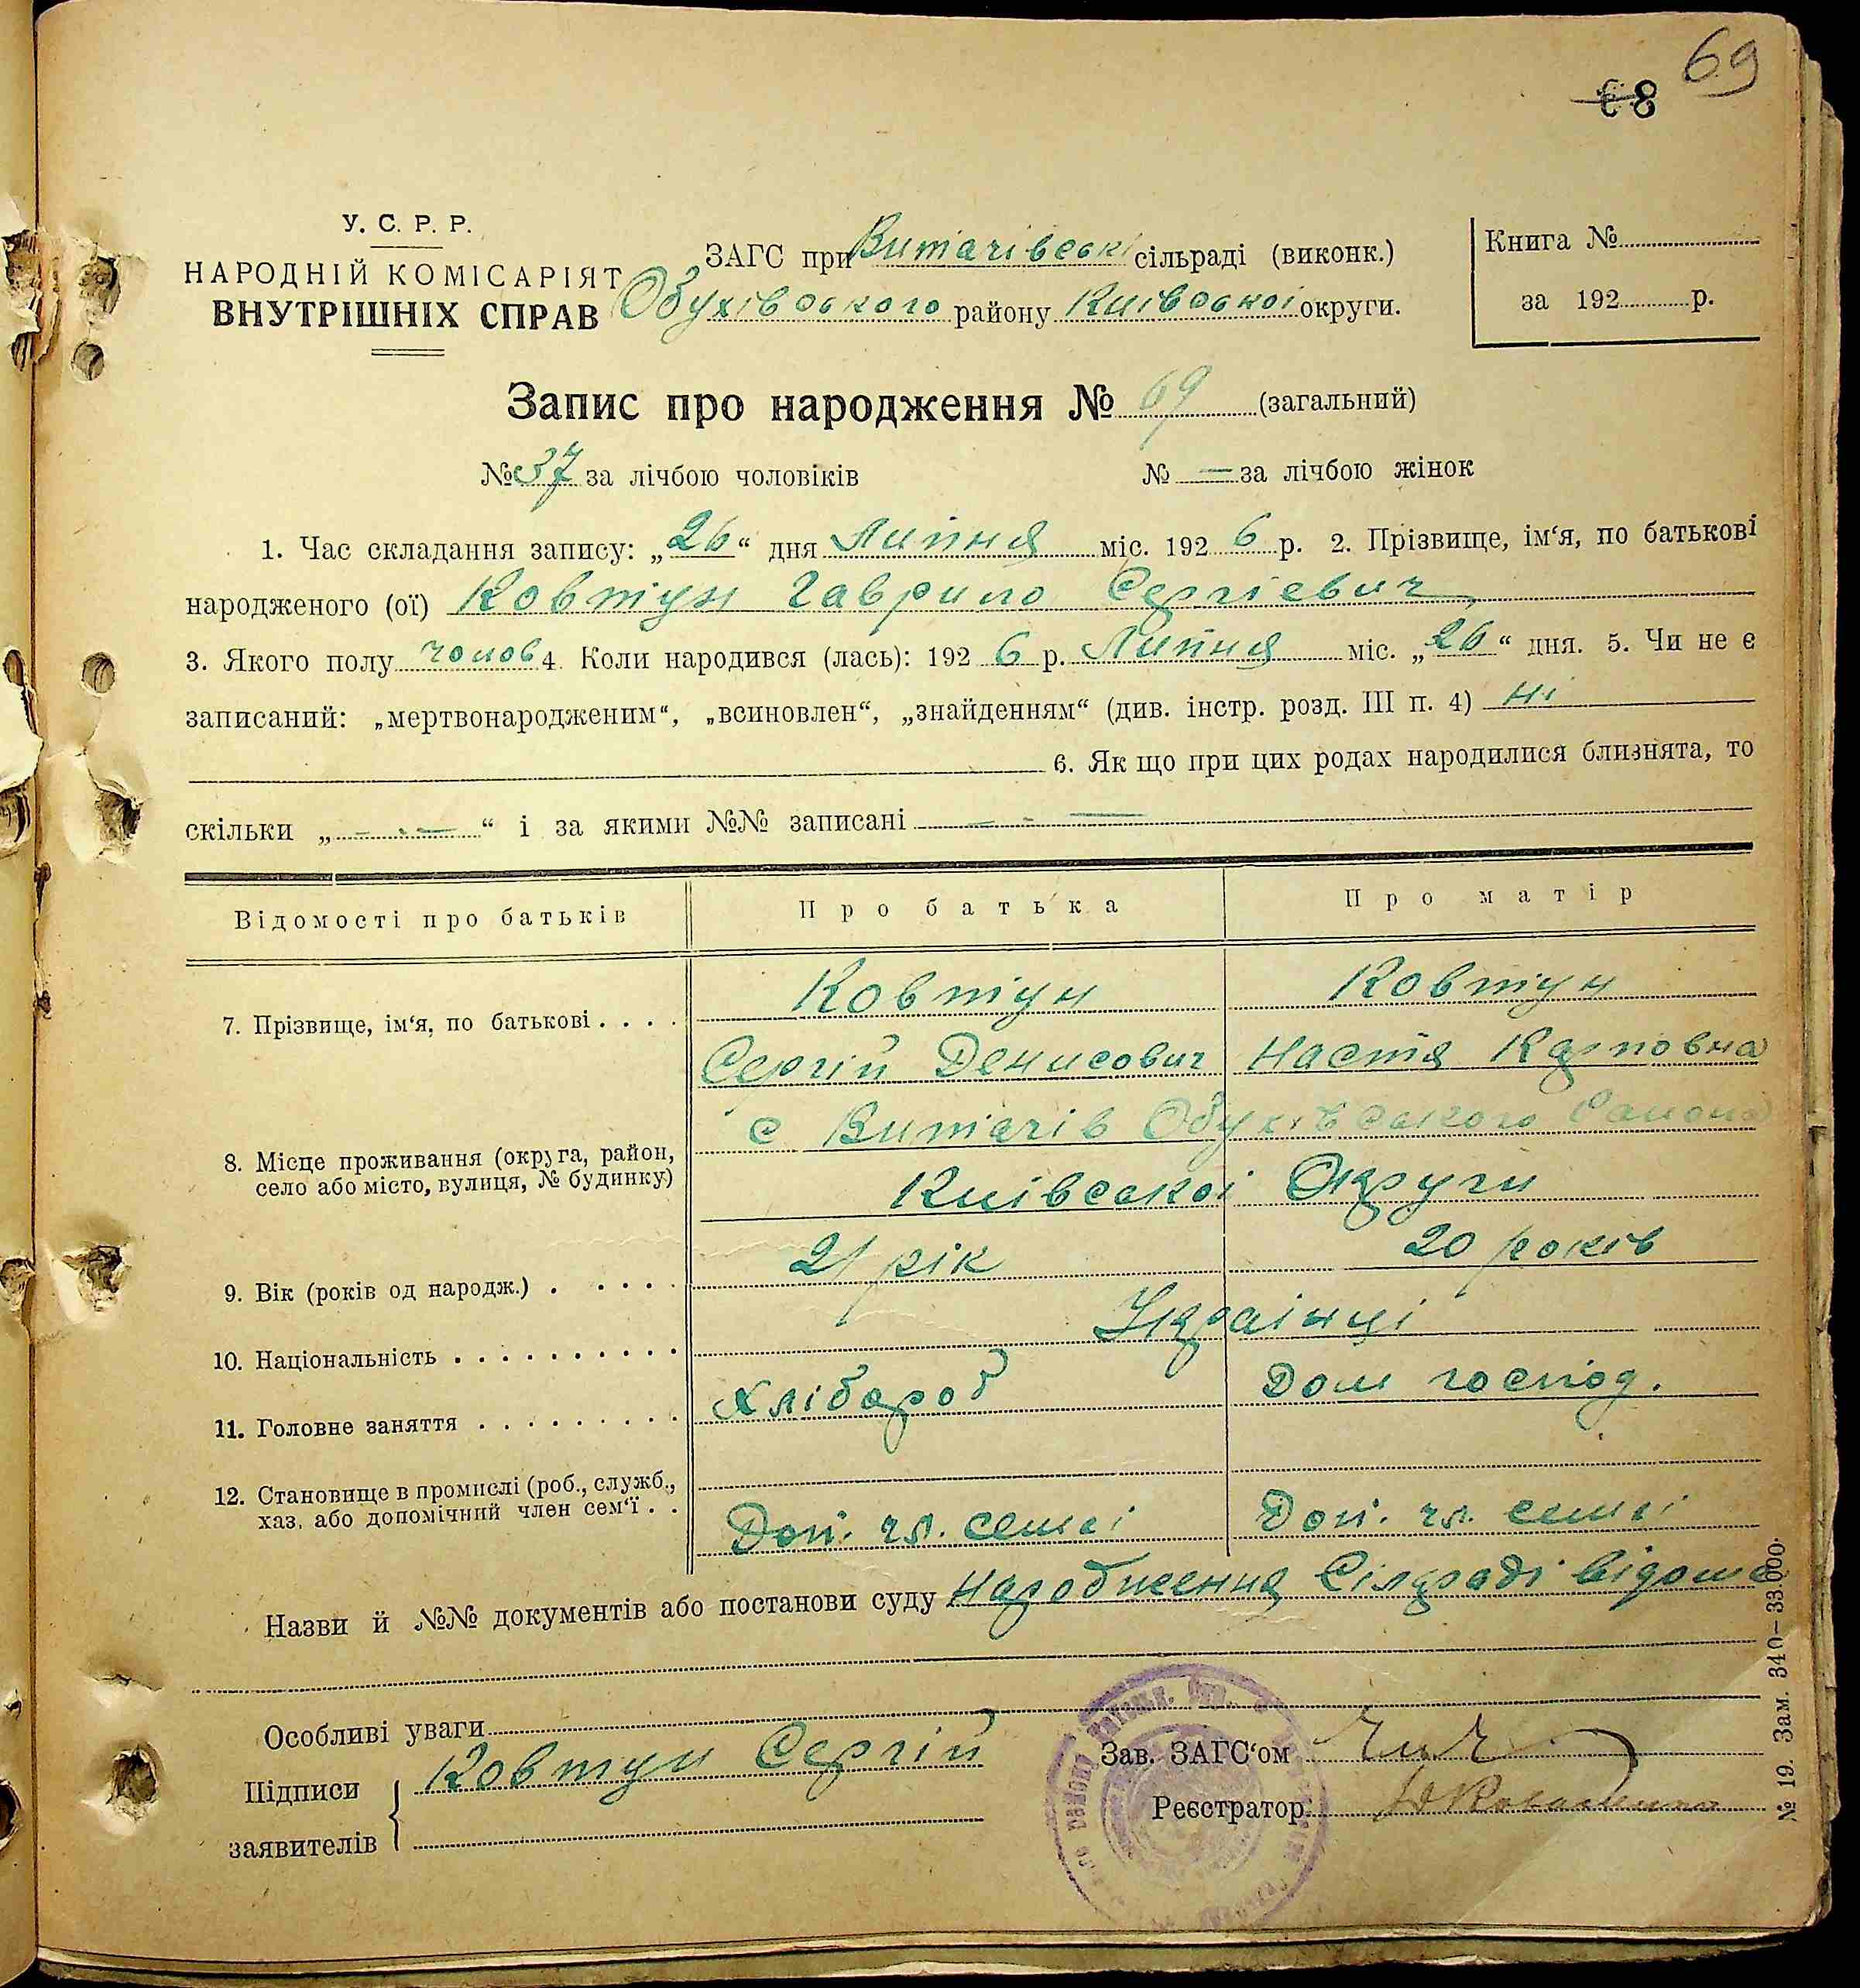 69
68
У. С. Р. Р.
НАРОДНІЙ КОМІСАРІЯТ
ВНУТРІШНІХ СПРАВ
ЗАГС при Витачівські сільраді (виконк.)
Обухівського району Київської округи.
Книга №
за 192 р.
Запис про народження № 69 (загальний)
№ 37 за лічбою чоловіків № — за лічбою жінок
1. Час складання запису: „26“ дня Липня міс. 1926 р. 2. Прізвище, ім‘я, по батькові
народженого (ої) Ковтун Гаврило Сергієвич
3. Якого полу чолов 4. Коли народився (лась): 1926 р. Липня міс. „26“ дня. 5. Чи не є
записаний: „мертвонародженим“, „всиновлен“, „знайденням“ (див. інстр. розд. III п. 4) ні
6. Як що при цих родах народилися близнята, то
скільки „ — “ і за якими №№ записані —
Відомості про батьків Про батька Про матір
7. Прізвище, ім‘я, по батькові . . . . Ковтун Ковтун
Сергій Денисович Настя Карповна
с Витачів Обухівського Району
8. Місце проживання (округа, район,
село або місто, вулиця, № будинку)
Київскої Округи
9. Вік (років од народж.) . . . . . 21 рік 20 років
10. Національність . . . . . . . . . . Українці
11. Головне заняття . . . . . . . . . Хлібороб Дом господ.
12. Становище в промислі (роб., служб.,
хаз. або допомічний член сем‘ї . .
Доп. чл. семьі Доп. чл. семьі
Назви й №№ документів або постанови суду Народження Сілраді відоме
Особливі уваги
Підписи
заявителів
Ковтун Сергій
Зав. ЗАГС‘ом
Реєстратор
№ 19. Зам. 340–33.000.